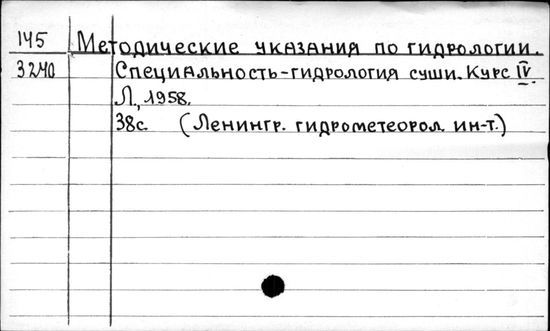 145 Методические указания по гидрологии.
3240 Специальность-гидрология суши. Курс IV
Л., 1958.
38с. (Ленингр. гидрометеорол. ин-т.)